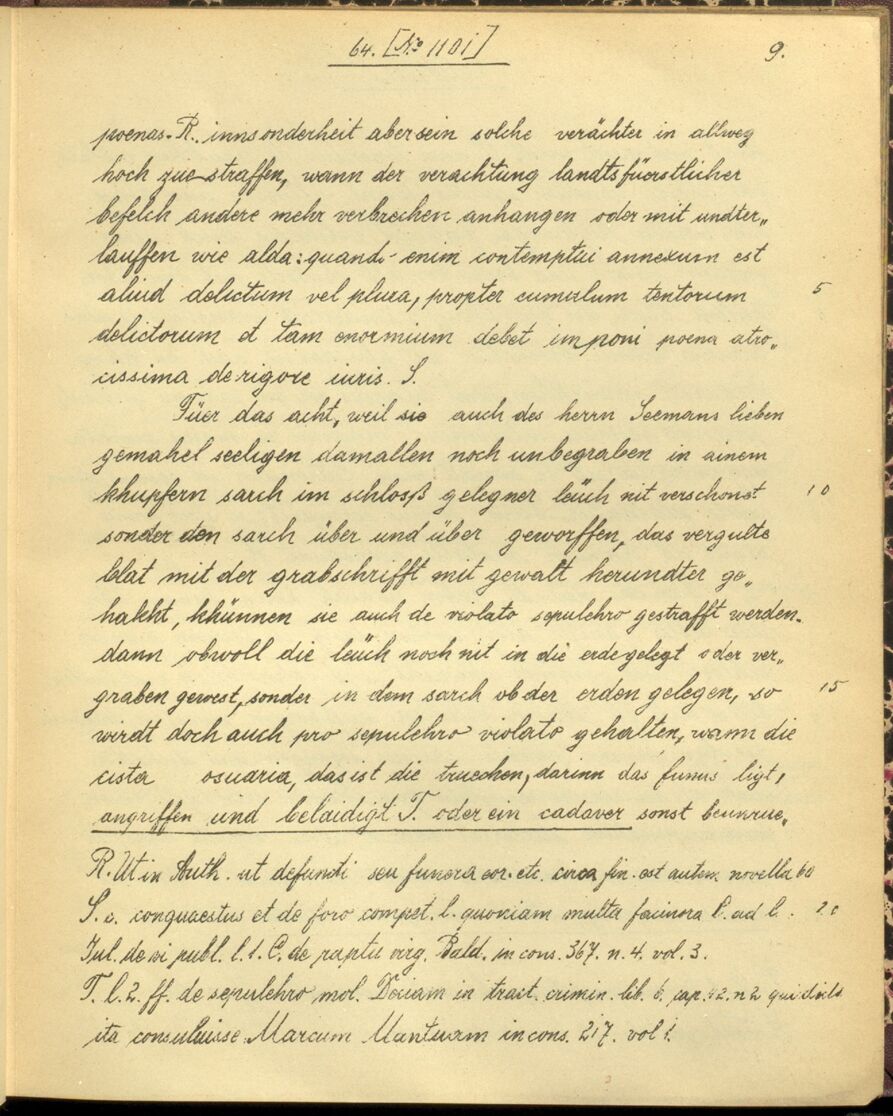 64. [No 1101]
9.
poenas. R. innsonderheit aber sein solche verächter in allweg
hoch zue straffen, wann der verachtung landtsfüerstlicher
befelch andere mehr verbrechen anhangen oder mit undter„
lauffen wie alda: quando enim contemptui annexum est
aliud delictum vel plura, propter cumulum tentorum 5
delictorum et tam enormium debet imponi poena atro„
cissima de rigore iuris. S.
Füer das acht, weil sie auch des herrn Seemans lieben
gemahel seeligen damallen noch unbegraben in ainem
khupfern sarch im schlosß gelegner leüch nit verschonet 10
sonder den sarch über und über geworffen, das vergulte
blat mit der grabschrifft mit gewalt herundter ge„
hakht, khünnen sie auch de violato sepulchro gestrafft werden.
dann obwoll die leüch noch nit in die erde gelegt oder ver„
graben gewest, sonder in dem sarch ob der erden gelegen, so 15
wirdt doch auch pro sepulchro violato gehalten, wann die
cista osuaria, das ist die truechen, darinn das funus ligt,
angriffen und belaidigt T. oder ein cadaver sonst beunrue„
R. Ut in Auth. ut defuncti seu funera eor. etc. circa fin. est autem novella 60
S. c. conquaestus et de foro compet. l. quoniam multa facinora C. ad l. 20
Jul. de vi publ. l. 1. C. de raptu virg. Bald. in cons. 367. n. 4. vol. 3.
T. l. 2. ff. de sepulchro mol. Deciam in tract. crimin. lib. 6, cap. 42. n 2 qui dicit
ita consuluisse Marcum Mantuam in cons. 217. vol 1.